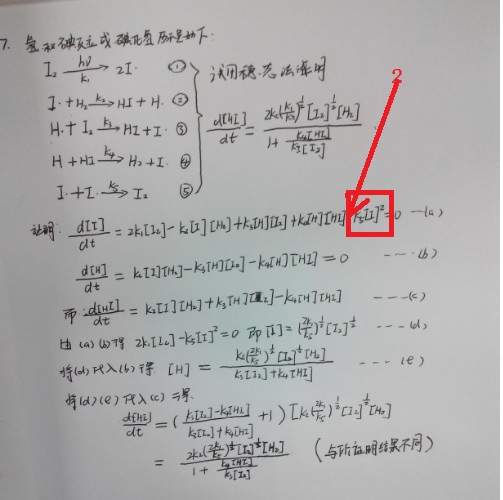 7. 氢和碘反应成碘化氢历程如下:
I₂ —hν/k₁→ 2I· ①
I· + H₂ —k₂→ HI + H· ②
H· + I₂ —k₃→ HI + I· ③
H + HI —k₄→ H₂ + I· ④
I· + I· —k₅→ I₂ ⑤
试用稳态法证明
d[HI]/dt = 2k₂(k₁/k₅)^½ [I₂]^½ [H₂] / (1 + k₄[HI]/k₃[I₂])
2
证明: d[I]/dt = 2k₁[I₂] - k₂[I][H₂] + k₃[H][I₂] + k₄[H][HI] k₅[I]² = 0 —(a)
d[H]/dt = k₂[I][H₂] - k₃[H][I₂] - k₄[H][HI] = 0 ---(b)
而 d[HI]/dt = k₂[I][H₂] + k₃[H][I₂] - k₄[H][HI] ---(c)
由(a)(b)得 2k₁[I₂] - k₅[I]² = 0 即 [I] = (2k₁/k₅)^½ [I₂]^½ ---(d)
将(d)代入(b)得 [H] = k₂(2k₁/k₅)^½ [I₂]^½ [H₂] / (k₃[I₂] + k₄[HI]) ---(e)
将(d)(e)代入(c)得
d[HI]/dt = ( (k₃[I₂] - k₄[HI]) / (k₃[I₂] + k₄[HI]) + 1 ) [k₂(2k₁/k₅)^½ [I₂]^½ [H₂]
= 2k₂(2k₁/k₅)^½ [I₂]^½ [H₂] / (1 + k₄[HI]/k₃[I₂]) (与所证明结果不同)